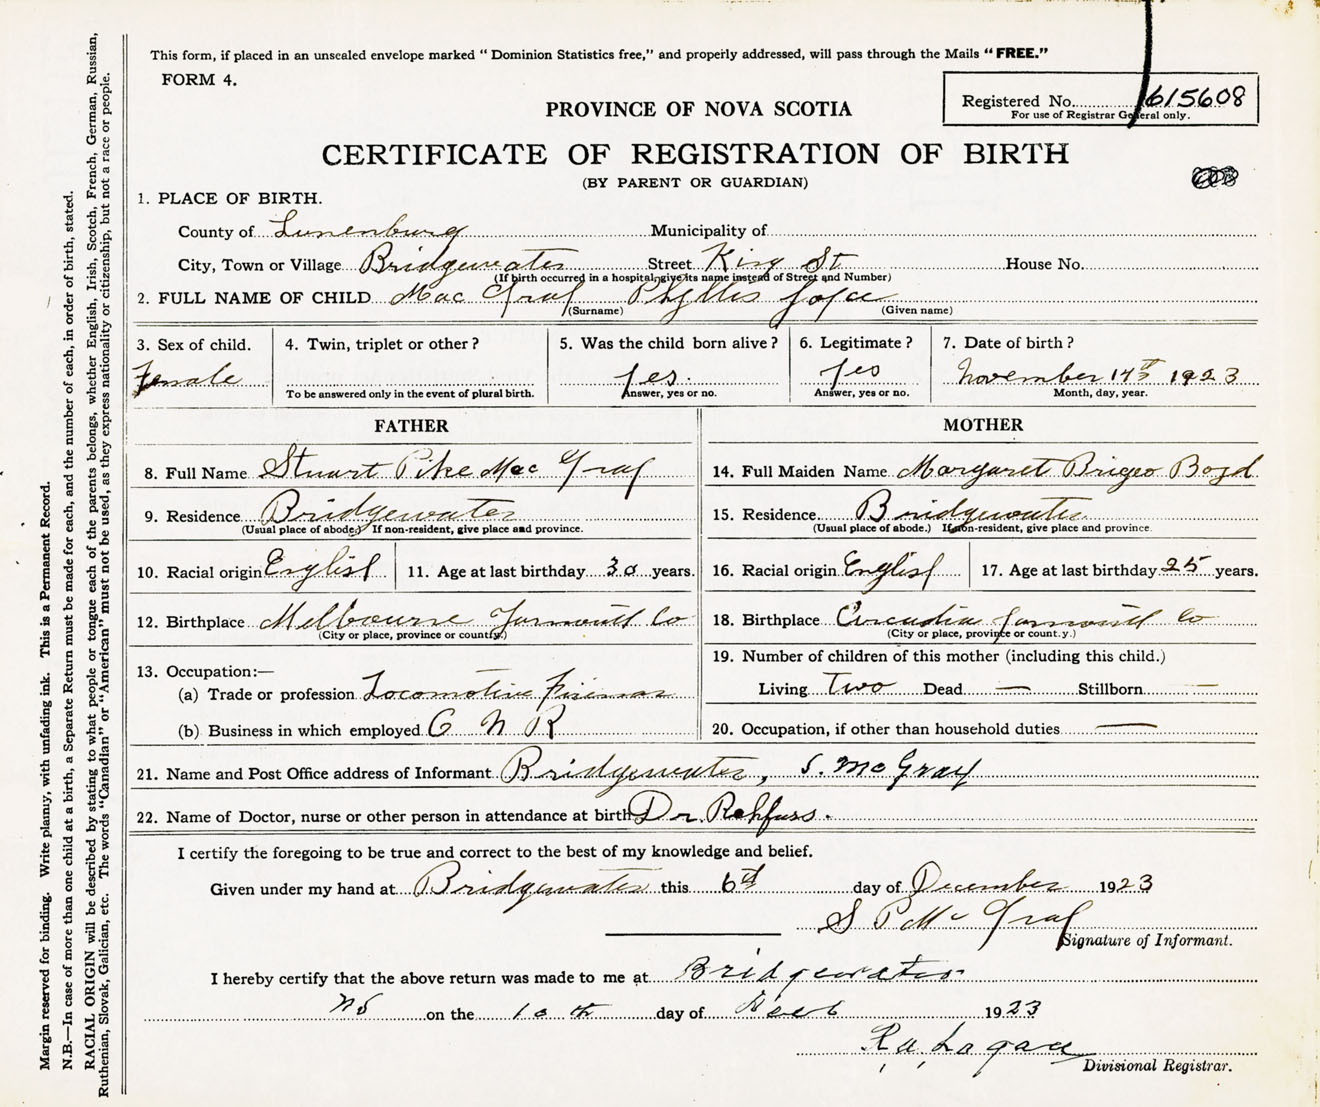 This form, if placed in an unsealed envelope marked " Dominion Statistics free," and properly addressed, will pass through the Mails "FREE."
FORM 4.
Registered No. 615608
For use of Registrar General only.
PROVINCE OF NOVA SCOTIA
CERTIFICATE OF REGISTRATION OF BIRTH
(BY PARENT OR GUARDIAN)
1. PLACE OF BIRTH.
County of Lunenburg Municipality of
City, Town or Village Bridgewater Street King St House No.
(If birth occurred in a hospital, give its name instead of Street and Number)
2. FULL NAME OF CHILD Mac Gray Phyllis Joyce
(Surname) (Given name)
3. Sex of child. 4. Twin, triplet or other? 5. Was the child born alive? 6. Legitimate? 7. Date of birth?
Female yes. yes November 14th 1923
To be answered only in the event of plural birth. Answer, yes or no. Answer, yes or no. Month, day, year.
FATHER
8. Full Name Stuart Pike Mac Gray
9. Residence Bridgewater
(Usual place of abode.) If non-resident, give place and province.
10. Racial origin English 11. Age at last birthday 30 years.
12. Birthplace Melbourne Yarmouth Co
(City or place, province or country.)
13. Occupation:—
(a) Trade or profession Locomotive Fireman
(b) Business in which employed C N R
MOTHER
14. Full Maiden Name Margaret Boyd
15. Residence Bridgewater
(Usual place of abode.) If non-resident, give place and province.
16. Racial origin English 17. Age at last birthday 25 years.
18. Birthplace Yarmouth Co
(City or place, province or count.y.)
19. Number of children of this mother (including this child.)
Living Two Dead — Stillborn —
20. Occupation, if other than household duties —
21. Name and Post Office address of Informant Bridgewater, S. McGray
22. Name of Doctor, nurse or other person in attendance at birth Dr. Rehfuss.
I certify the foregoing to be true and correct to the best of my knowledge and belief.
Given under my hand at Bridgewater this 6th day of December 1923
S P Mc Gray
Signature of Informant.
I hereby certify that the above return was made to me at Bridgewater
NS on the 10th day of 1923
Divisional Registrar.
Margin reserved for binding. Write plainly, with unfading ink. This is a Permanent Record.
N.B.—In case of more than one child at a birth, a Separate Return must be made for each, and the number of each, in order of birth, stated.
RACIAL ORIGIN will be described by stating to what people or tongue each of the parents belongs, whether English, Irish, Scotch, French, German, Russian,
Ruthenian, Slovak, Galician, etc. The words "Canadian" or "American" must not be used, as they express nationality or citizenship, but not a race or people.